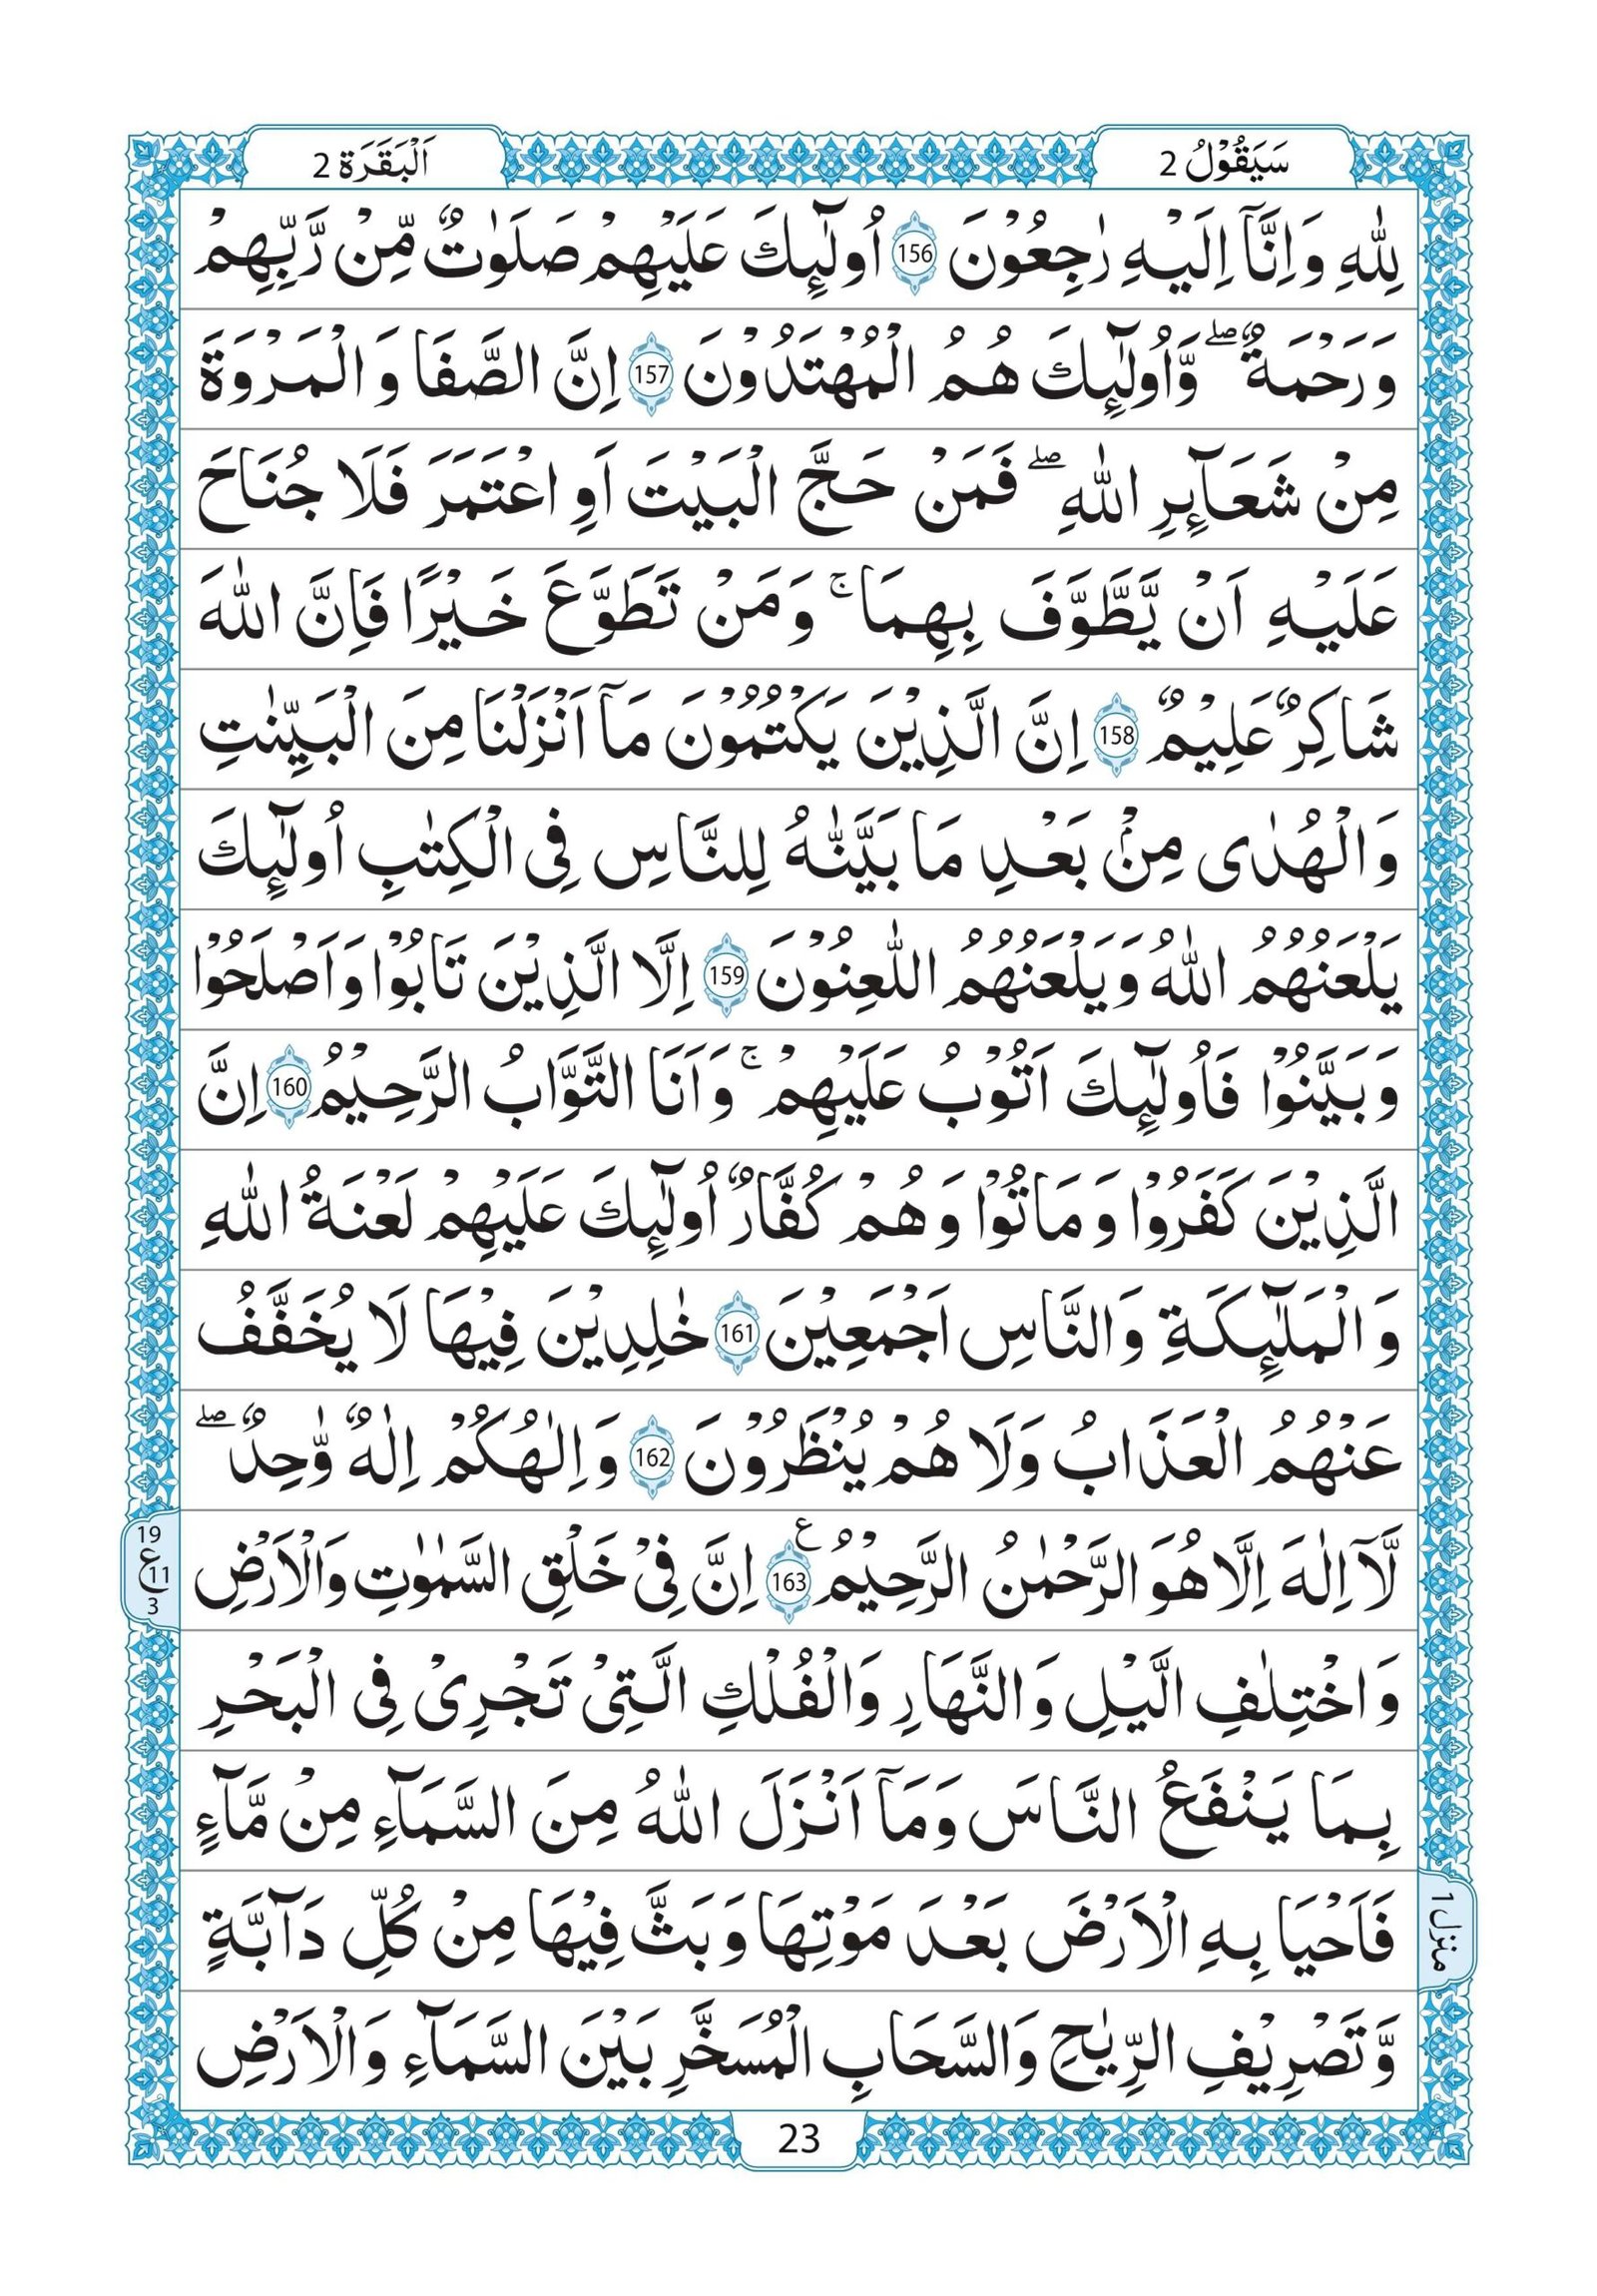 سَيَقُوْلُ 2
اَلْبَقَرَة 2
لِلّٰهِ وَاِنَّاۤ اِلَيْهِ رٰجِعُوْنَ 156 اُولٰٓئِكَ عَلَيْهِمْ صَلَوٰتٌ مِّنْ رَّبِّهِمْ
وَرَحْمَةٌ ۖ وَّاُولٰٓئِكَ هُمُ الْمُهْتَدُوْنَ 157 اِنَّ الصَّفَا وَالْمَرْوَةَ
مِنْ شَعَآئِرِ اللّٰهِ ۖ فَمَنْ حَجَّ الْبَيْتَ اَوِ اعْتَمَرَ فَلَا جُنَاحَ
عَلَيْهِ اَنْ يَّطَّوَّفَ بِهِمَا ۚ وَمَنْ تَطَوَّعَ خَيْرًا فَاِنَّ اللّٰهَ
شَاكِرٌ عَلِيْمٌ 158 اِنَّ الَّذِيْنَ يَكْتُمُوْنَ مَاۤ اَنْزَلْنَا مِنَ الْبَيِّنٰتِ
وَالْهُدٰى مِنْۢ بَعْدِ مَا بَيَّنّٰهُ لِلنَّاسِ فِى الْكِتٰبِ اُولٰٓئِكَ
يَلْعَنُهُمُ اللّٰهُ وَيَلْعَنُهُمُ اللّٰعِنُوْنَ 159 اِلَّا الَّذِيْنَ تَابُوْا وَاَصْلَحُوْا
وَبَيَّنُوْا فَاُولٰٓئِكَ اَتُوْبُ عَلَيْهِمْ ۚ وَاَنَا التَّوَّابُ الرَّحِيْمُ 160 اِنَّ
الَّذِيْنَ كَفَرُوْا وَمَاتُوْا وَهُمْ كُفَّارٌ اُولٰٓئِكَ عَلَيْهِمْ لَعْنَةُ اللّٰهِ
وَالْمَلٰٓئِكَةِ وَالنَّاسِ اَجْمَعِيْنَ 161 خٰلِدِيْنَ فِيْهَا لَا يُخَفَّفُ
عَنْهُمُ الْعَذَابُ وَلَا هُمْ يُنْظَرُوْنَ 162 وَاِلٰهُكُمْ اِلٰهٌ وّٰحِدٌ ۖ
لَّاۤ اِلٰهَ اِلَّا هُوَ الرَّحْمٰنُ الرَّحِيْمُ 163 ع اِنَّ فِىْ خَلْقِ السَّمٰوٰتِ وَالْاَرْضِ
19
ع 11
3
وَاخْتِلٰفِ الَّيْلِ وَالنَّهَارِ وَالْفُلْكِ الَّتِىْ تَجْرِىْ فِى الْبَحْرِ
بِمَا يَنْفَعُ النَّاسَ وَمَاۤ اَنْزَلَ اللّٰهُ مِنَ السَّمَآءِ مِنْ مَّآءٍ
فَاَحْيَا بِهِ الْاَرْضَ بَعْدَ مَوْتِهَا وَبَثَّ فِيْهَا مِنْ كُلِّ دَآبَّةٍ
منزل 1
وَّتَصْرِيْفِ الرِّيٰحِ وَالسَّحَابِ الْمُسَخَّرِ بَيْنَ السَّمَآءِ وَالْاَرْضِ
23